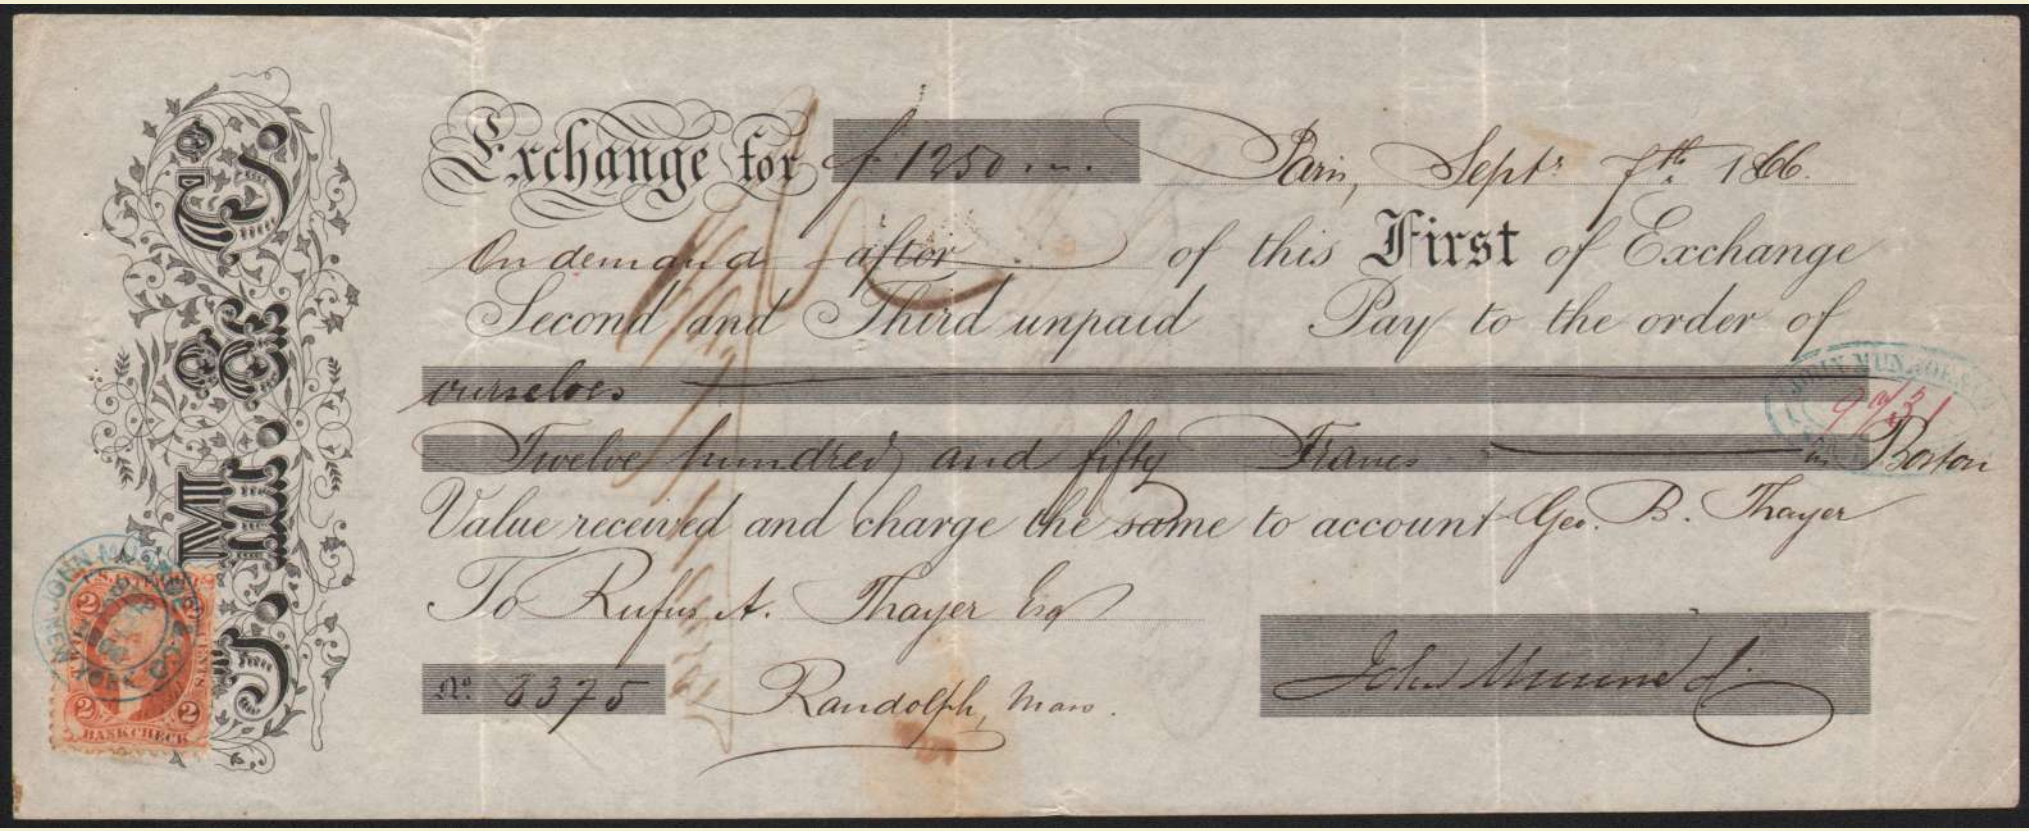 Exchange for f 1250 Paris, Septr 7th 1866.
On demand after of this First of Exchange
Second and Third unpaid Pay to the order of
ourselves
Twelve hundred and fifty Francs in Boston
Value received and charge the same to account Geo. B. Thayer
To Rufus A. Thayer Esq
No 8375 Randolph, Mass.
John Munroe & Co.
J. M. & Co.
JOHN MUNROE & CO
NEW YORK
U.S. INTER. REV.
2 2
2 2
BANK CHECK
JOHN MUNROE & CO